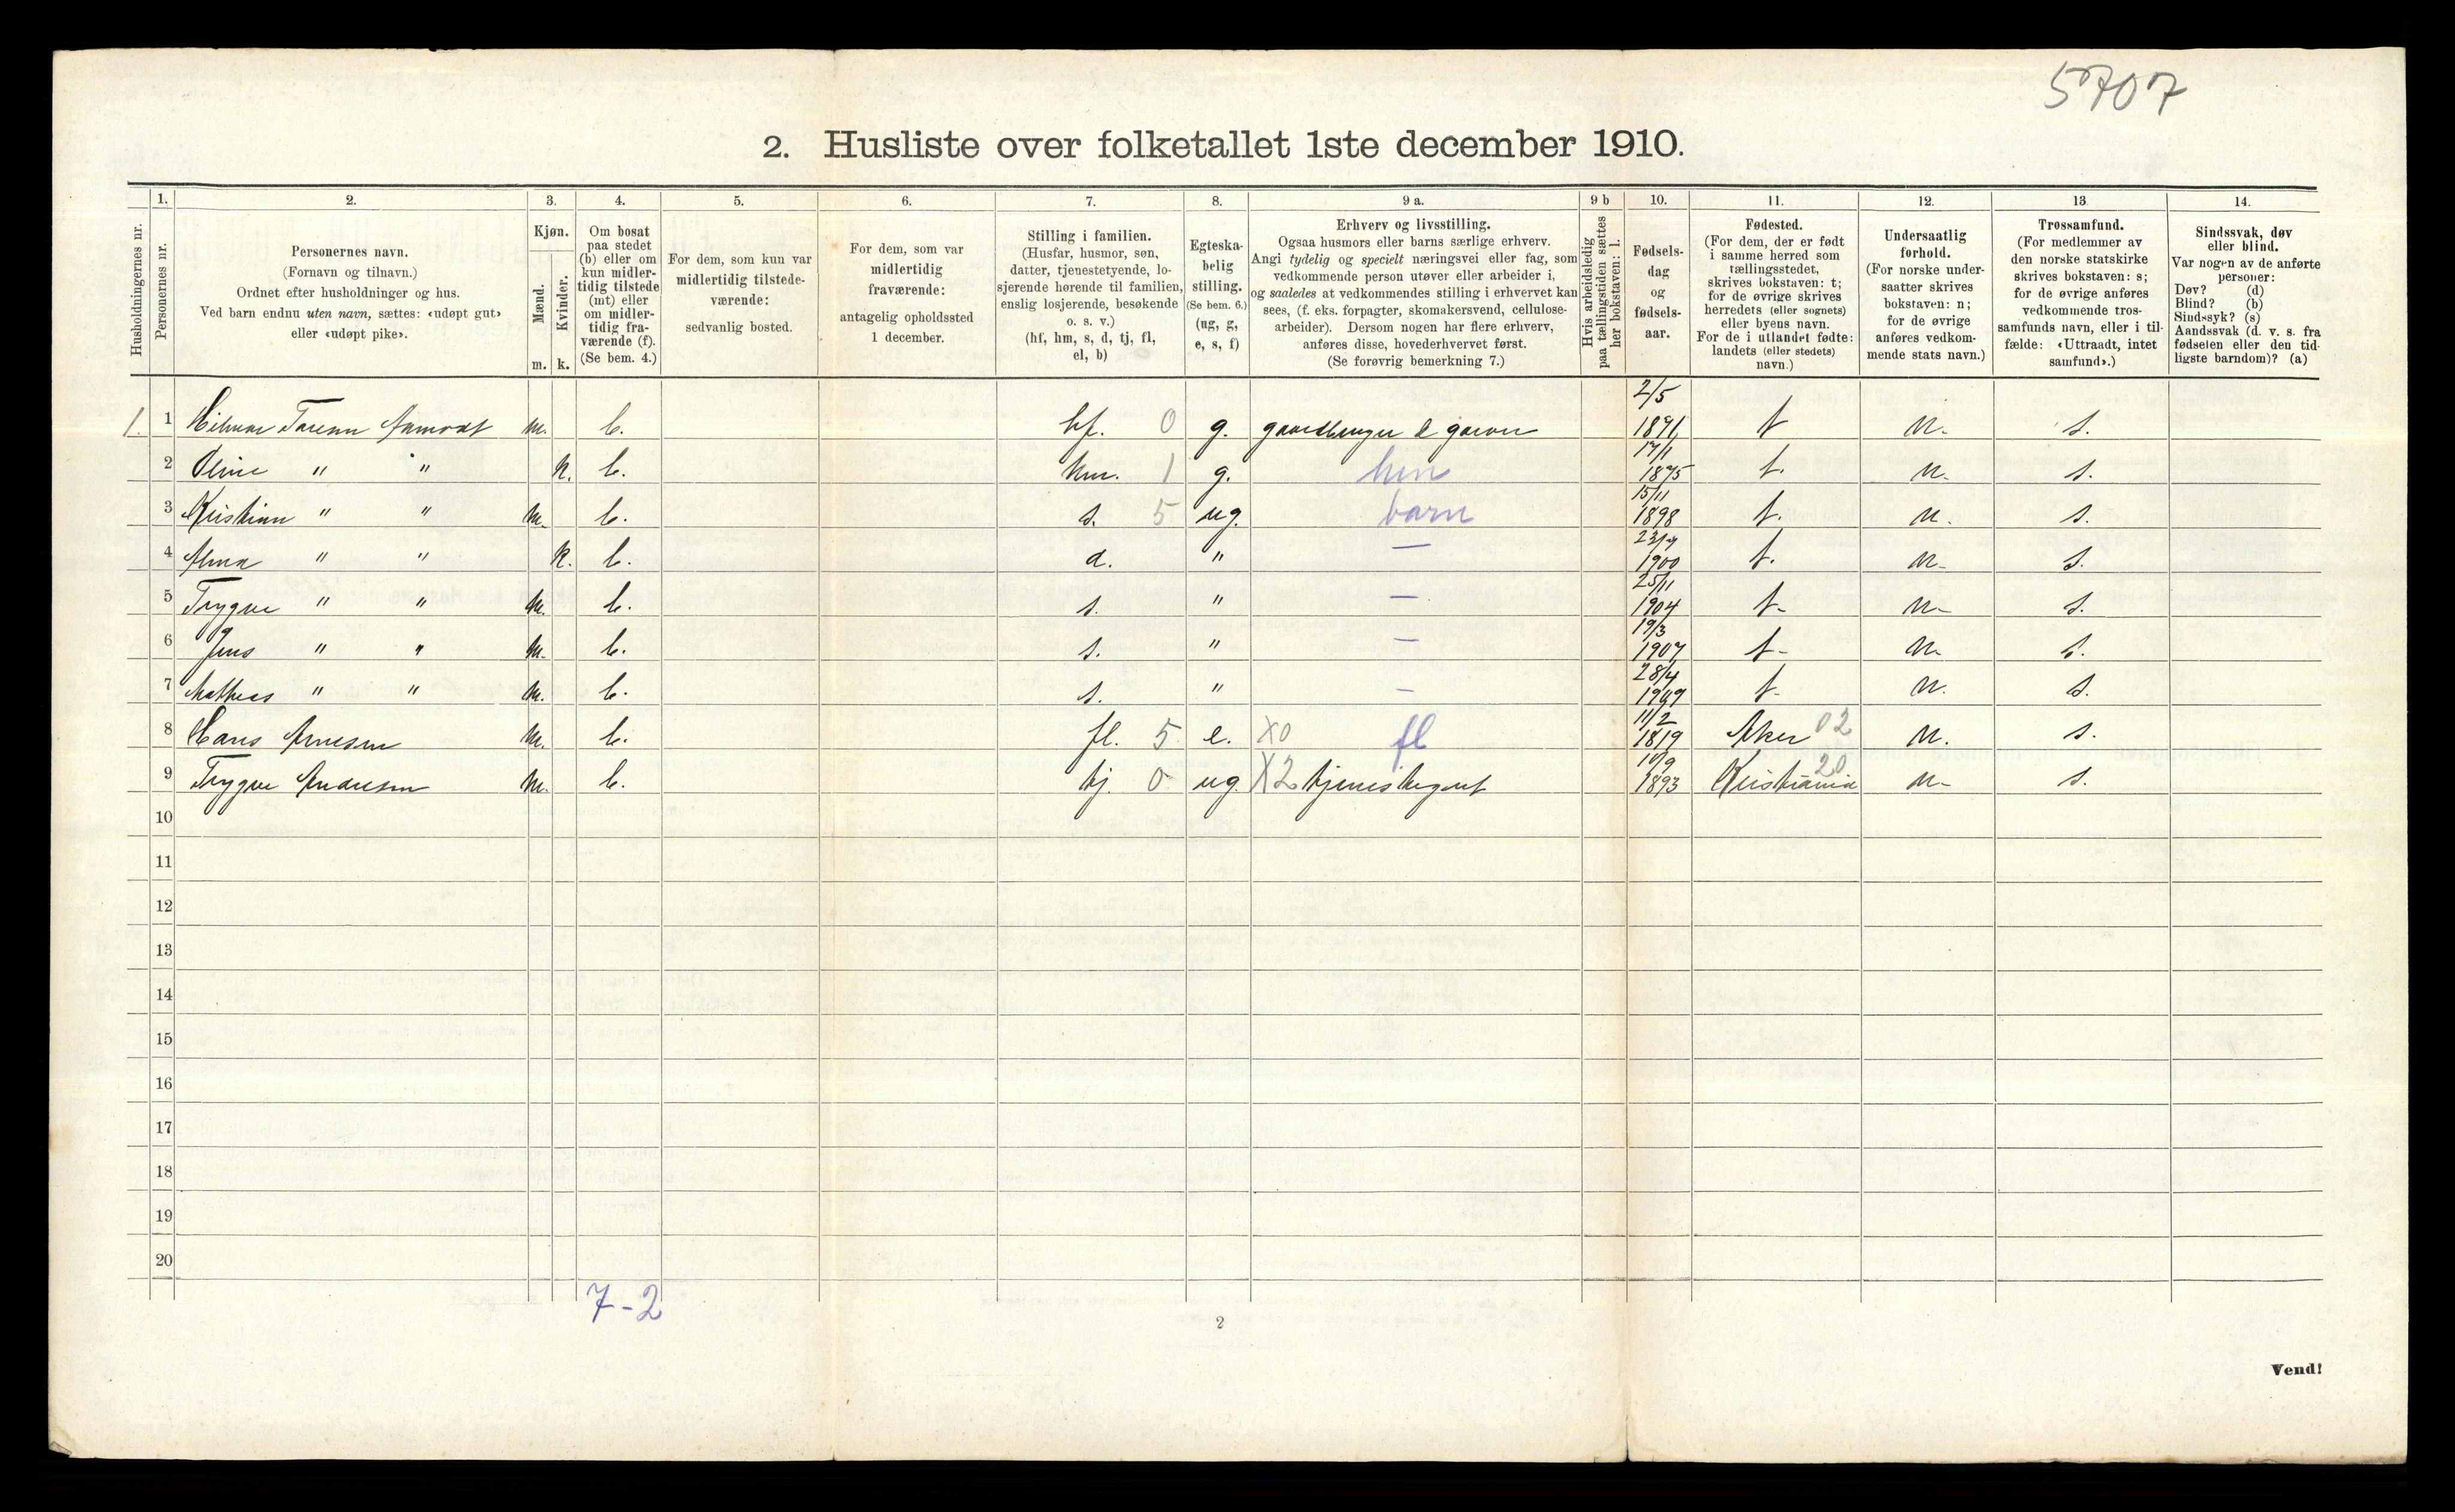 5707
2. Husliste over folketallet 1ste december 1910.
1. 2. 3. 4. 5. 6. 7. 8. 9 a. 9 b 10. 11. 12. 13 14.
Husholdningernes nr.
Personernes nr.
Personernes navn.
(Fornavn og tilnavn.)
Ordnet efter husholdninger og hus.
Ved barn endnu uten navn, sættes: «udøpt gut»
eller «udøpt pike».
Kjøn.
Mænd.
Kvinder.
m. k.
Om bosat
paa stedet
(b) eller om
kun midler-
tidig tilstede
(mt) eller
om midler-
tidig fra-
værende (f).
(Se bem. 4.)
For dem, som kun var
midlertidig tilstede-
værende:
sedvanlig bosted.
For dem, som var
midlertidig
fraværende:
antagelig opholdssted
1 december.
Stilling i familien.
(Husfar, husmor, søn,
datter, tjenestetyende, lo-
sjerende hørende til familien,
enslig losjerende, besøkende
o. s. v.)
(hf, hm, s, d, tj, fl,
el, b)
Egteska-
belig
stilling.
(Se bem. 6.)
(ug, g,
e, s, f)
Erhverv og livsstilling.
Ogsaa husmors eller barns særlige erhverv.
Angi tydelig og specielt næringsvei eller fag, som
vedkommende person utøver eller arbeider i,
og saaledes at vedkommendes stilling i erhvervet kan
sees, (f. eks. forpagter, skomakersvend, cellulose-
arbeider). Dersom nogen har flere erhverv,
anføres disse, hovederhvervet først.
(Se forøvrig bemerkning 7.)
Hvis arbeidsledig
paa tællingstiden sættes
her bokstaven: l.
Fødsels-
dag
og
fødsels-
aar.
Fødested.
(For dem, der er født
i samme herred som
tællingsstedet,
skrives bokstaven: t;
for de øvrige skrives
herredets (eller sognets)
eller byens navn.
For de i utlandet fødte:
landets (eller stedets)
navn.)
Undersaatlig
forhold.
(For norske under-
saatter skrives
bokstaven: n;
for de øvrige
anføres vedkom-
mende stats navn.)
Trossamfund.
(For medlemmer av
den norske statskirke
skrives bokstaven: s;
for de øvrige anføres
vedkommende tros-
samfunds navn, eller i til-
fælde: «Uttraadt, intet
samfund».)
Sindssvak, døv
eller blind.
Var nogen av de anførte
personer:
Døv? (d)
Blind? (b)
Sindssyk? (s)
Aandssvak (d. v. s. fra
fødselen eller den tid-
ligste barndom)? (a)
1. 1 Hilmar m. b. hf. 0 g. 2/5 1871 t n. s.
2 Oline " " k. b. hm. 1 g. hm 17/1 1875 t. n. s.
3 Kristian " " m. b. s. 5 ug. barn 15/11 1898 t. n. s.
4 Alma " " k. b. d. " — 1900 t. n. s.
5 Trygve " " m. b. s. " — 25/11 1904 t. n. s.
6 Jens " " m. b. s. " — 19/3 1907 t. n. s.
7 Mathias " " m. b. s. " — 28/4 t. n. s.
8 Hans Arnesen m. b. fl. 5 e. X0 fl 11/2 1819 Aker 02 n. s.
9 Trygve Andresen m. b. tj. 0 ug. X2 tjenestegut 10/9 1893 Kristiania 20 n. s.
10
11
12
13
14
15
16
17
18
19
20
7-2
2
Vend!